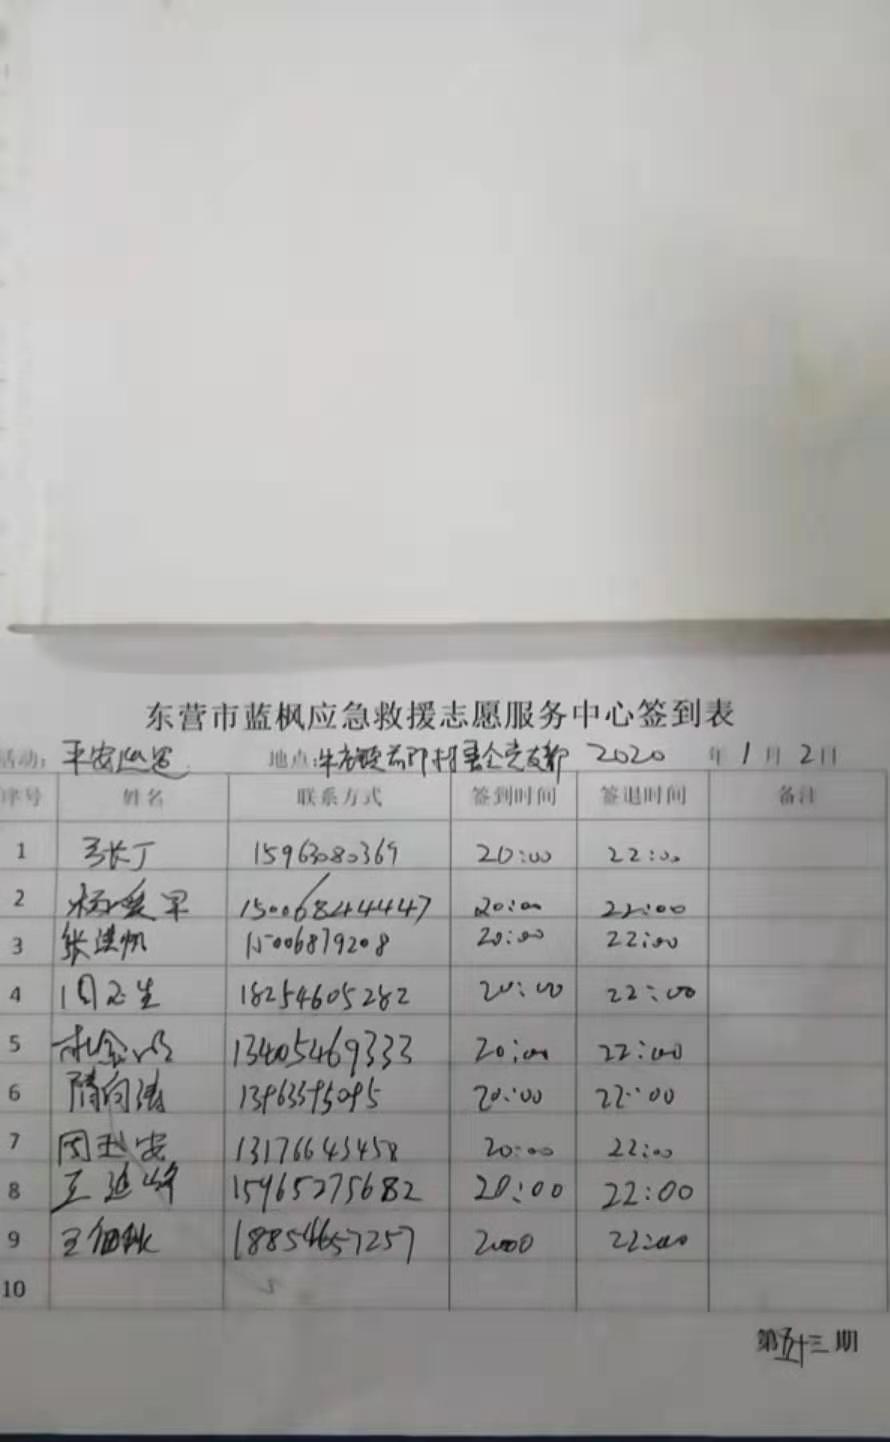 东营市蓝枫应急救援志愿服务中心签到表
活动：平安巡逻 地点：牛庄镇 村 党支部 2020 年 1 月 2 日
序号 姓名 联系方式 签到时间 签退时间 备注
1 张丁 15963080369 20:00 22:00
2 杨爱军 15006844447 20:00 22:00
3 张洪帆 15006879208 20:00 22:00
4 周志生 18254605282 20:00 22:00
5 13405469333 20:00 22:00
6 隋向涛 13963595095 20:00 22:00
7 周 安 13176643458 20:00 22:00
8 王延峰 15965275682 20:00 22:00
9 王 秋 18854657257 2000 22:00
10
第五十三期